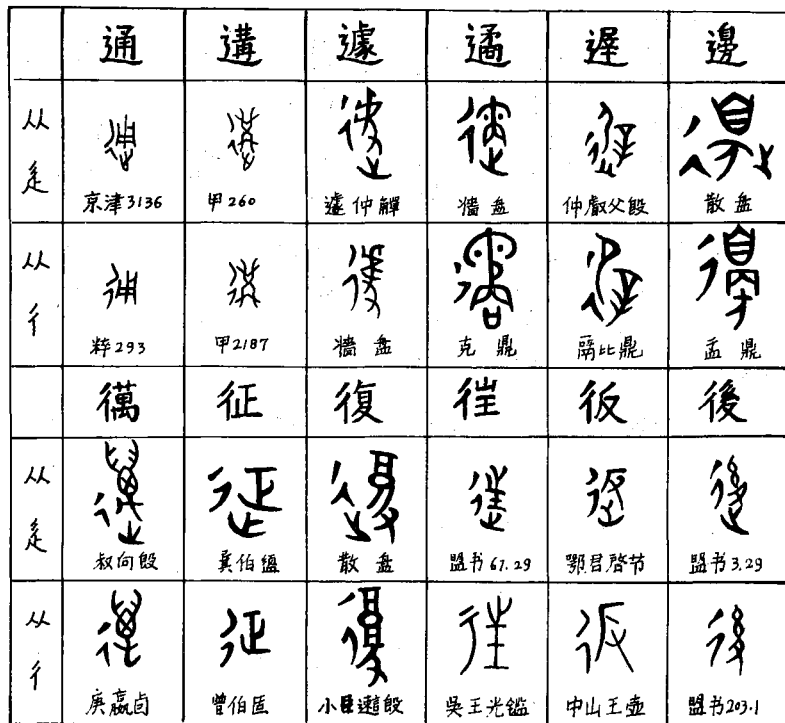 通 遘 遽 遹 遲 邊
从辵
京津3136 甲260 遽仲觶 牆盘 仲𠭯父殷 散盘
从彳
粹293 甲2187 牆盘 克鼎 鬲比鼎 盂鼎
徫 征 復 徃 彶 後
从辵
叔向殷 㠱伯盨 散盘 盟书67.29 鄂君啓节 盟书3.29
从彳
庚嬴卣 曾伯匜 小臣𬨎殷 吳王光鑑 中山王壶 盟书203.1